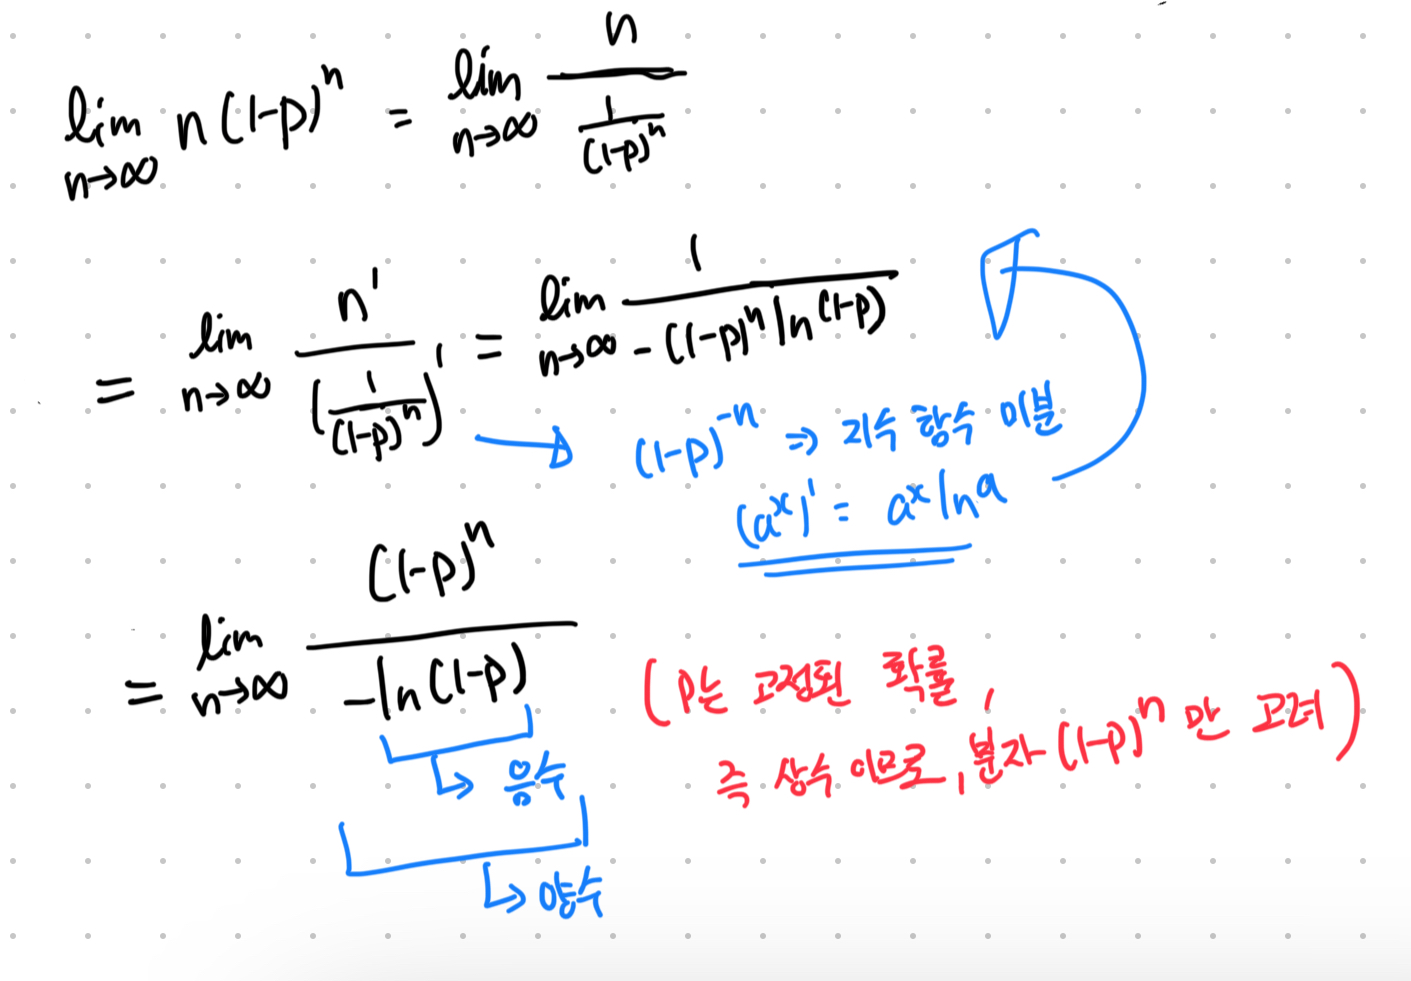 lim_{n→∞} n(1-p)^n = lim_{n→∞} n / (1/(1-p)^n)
= lim_{n→∞} n' / (1/(1-p)^n)' = lim_{n→∞} 1 / (-(1-p)^n ln(1-p))
(1-p)^{-n} ⇒ 지수 함수 미분
(a^x)' = a^x ln a
= lim_{n→∞} (1-p)^n / (-ln(1-p))
(p는 고정된 확률,
즉 상수 이므로, 분자 (1-p)^n 만 고려)
음수
양수